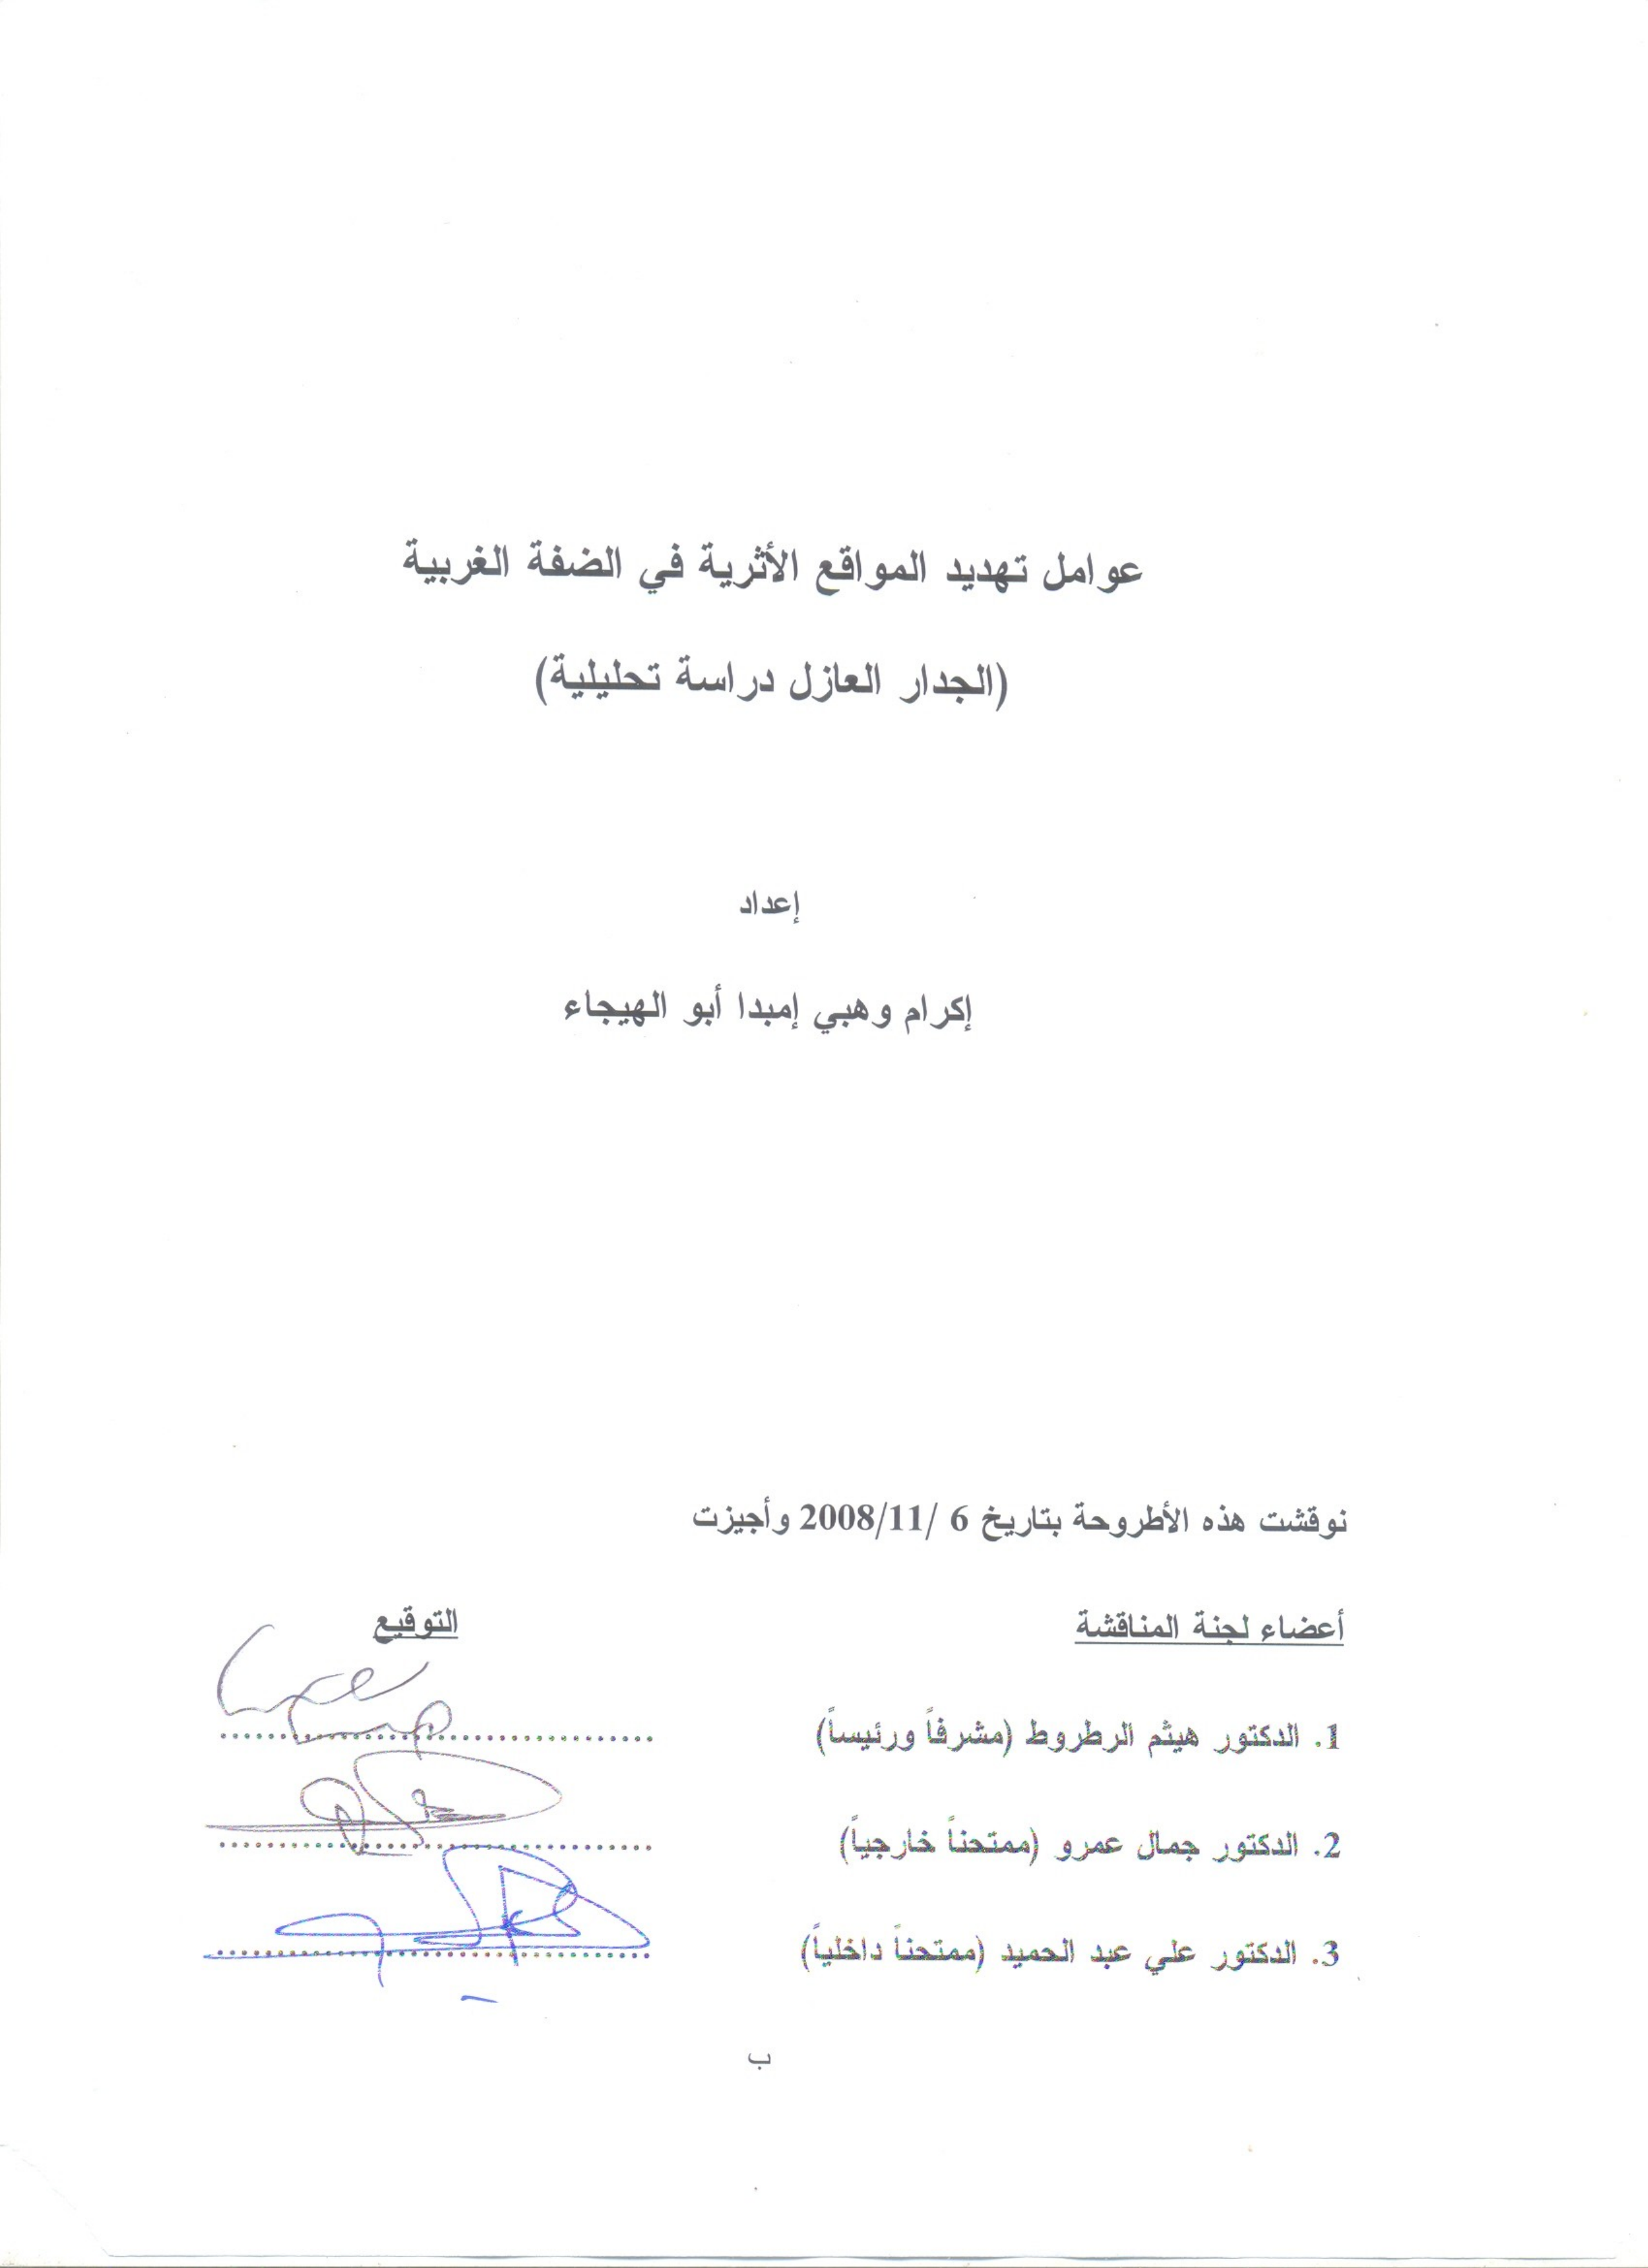 عوامل تهديد المواقع الأثرية في الضفة الغربية
(الجدار العازل دراسة تحليلية)
إعداد
إكرام وهبي إمبدا أبو الهيجاء
نوقشت هذه الأطروحة بتاريخ 6 /2008/11 وأجيزت
أعضاء لجنة المناقشة التوقيع
1. الدكتور هيثم الرطروط (مشرفاً ورئيساً) ..................................
2. الدكتور جمال عمرو (ممتحناً خارجياً) ..................................
3. الدكتور علي عبد الحميد (ممتحناً داخلياً) ..................................
ب